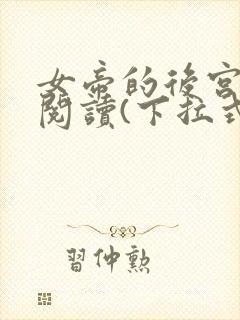 女帝的後宮
閱讀(下拉式
習仲勲